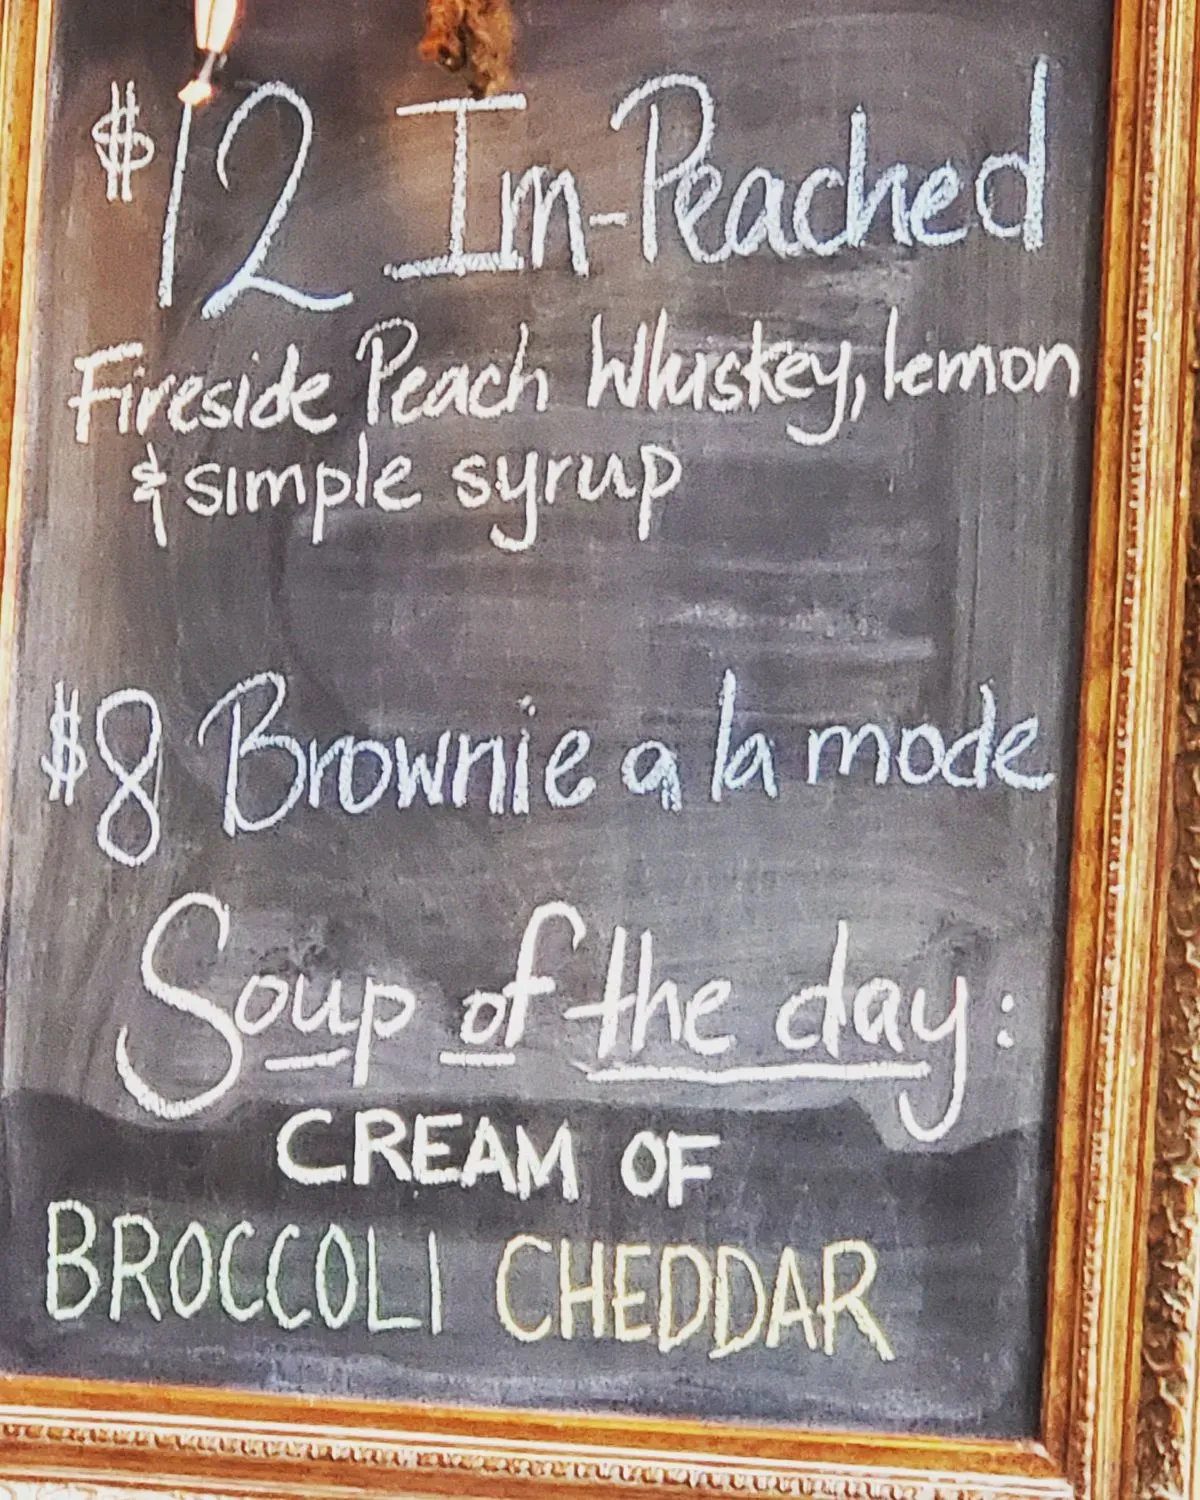 $12 Im-Peached
Fireside Peach Whiskey, lemon
& simple syrup
$8 Brownie a la mode
Soup of the day:
CREAM OF
BROCCOLI CHEDDAR